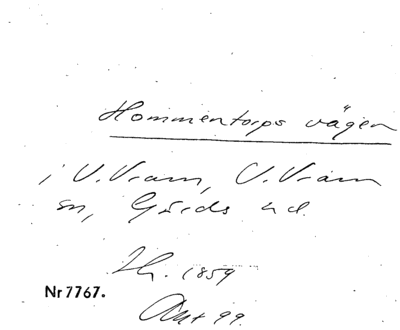 Hommentorps vägen
i V. Vram, V. Vram
sn, Gärds hd.
Th. 1859
Nr 7767.
Akt 99.